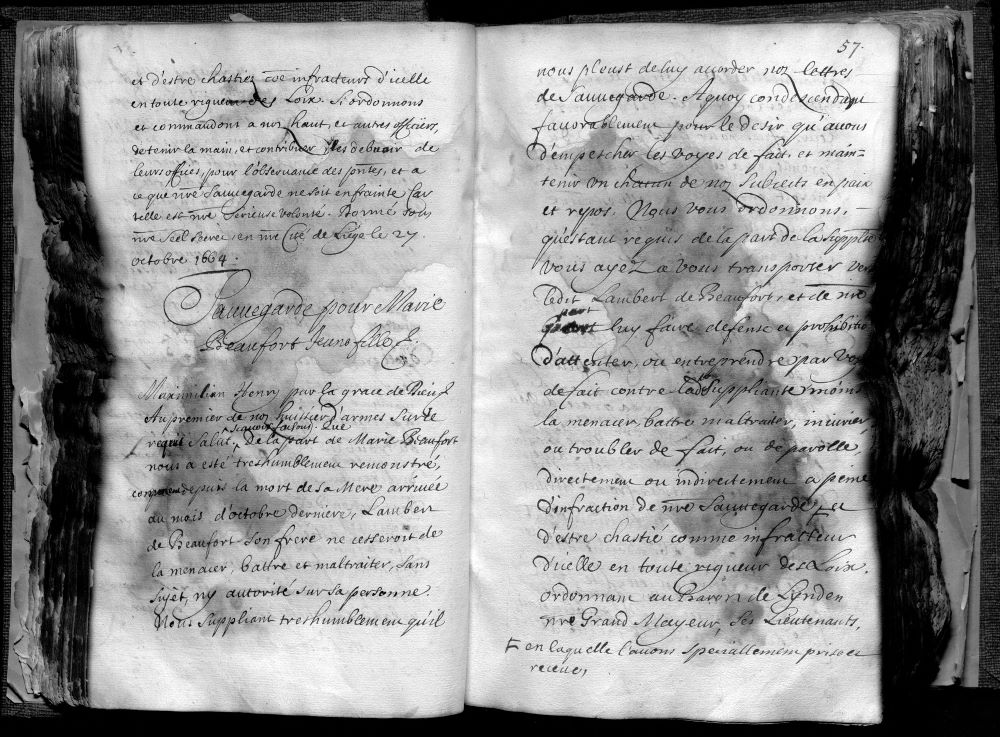 et d'estre chastiez cōe infracteurs d'icelle
en toute rigueur des Loix. Si ordonnons
et commandons a noz haut, et autres officiers,
de tenir la main, et contribuer les debuoir de
leurs offices, pour l'observance des pontes, et a
ce que nre Sauvegarde ne soit enfrainte Car
telle est nre serieuse volonté. Donné sous
nre Seel secret, en nre Cité de Liége le 27.
octobre 1664.
Sauvegarde pour Marie
Beaufort Jeune fille
Maximilian Henry par la grace de Dieu
Au premier de noz huissier d'armes sur ce
sçavoir faisons. Que
requis Salut, De la part de Marie Beaufort
nous a esté treshumblement remonstré,
comment depuis la mort de sa Mere arrivée
au mois d'octobre derniere, Lambert
de Beaufort son frere ne cesseroit de
la menacer, battre et maltraiter, sans
sujèt, ny autorité sur sa personne.
Nous suppliant treshumblement qu'il
57.
nous pleust de luy accorder noz lettres
de Sauvegarde. Aquoy condescendant
favorablement pour le desir qu'avons
d'empescher les voyes de fait, et main=
tenir un chacun de noz subiects en paix
et repos. Nous vous ordonnons,
qu'estant requis de la part de la Supplie
vous ayez a vous transporter vers
ledit Lambert de Beaufort, et de nre
part
luy faire defense et prohibitio
d'attenter, ou entreprendre par voy
de fait contre lad Suppliante moins
la menacer, battre maltraiter, iniurier
ou troubler de fait, ou de parolle,
directement ou indirectement a peine
d'infraction de nre Sauvegarde et
d'estre chastié comme infracteur
d'icelle en toute rigueur des Loix.
ordonnant au Baron de Lynden
nre Grand Mayeur, ses Lieutenants,
en laquelle l'avons speciallement prise et
receüe,